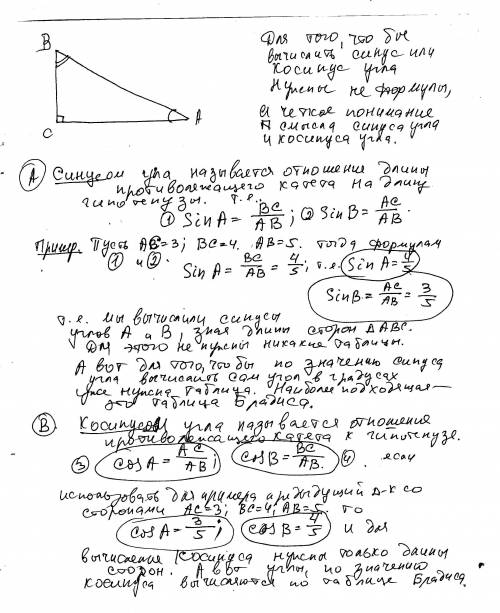 B
C
A
Для того, что бы
вычислить синус или
косинус угла
Нужны не формулы,
а четкое понимание
смысла синуса угла
и косинуса угла.
А Синусом угла называется отношение длины
противолежащего катета на длину
гипотенузы. т.е.
① Sin A = BC/AB ; ② Sin B = AC/AB.
Пример. Пусть AC=3; BC=4. AB=5. тогда формулам
① и ②. Sin A = BC/AB = 4/5; т.е. Sin A = 4/5
Sin B = AC/AB = 3/5
т.е. мы вычислили синусы
углов A и B, зная длины сторон ΔABC.
Для этого не нужны никакие таблицы.
А вот для того, что бы по значению синуса
угла вычислить сам угол в градусах
уже нужна таблица. Наиболее подходящая —
это таблица Брадиса.
В Косинусом угла называется отношение
противолежащего катета к гипотенузе.
③ cos A = AC/AB; cos B = BC/AB. ④. если
использовать для примера предыдущий Δ-к со
сторонами AC=3; BC=4; AB=5. то
cos A = 3/5; cos B = 4/5 и для
вычисления косинуса нужны только длины
сторон. А вот углы, по значению
косинуса вычисляются по таблице Брадиса.